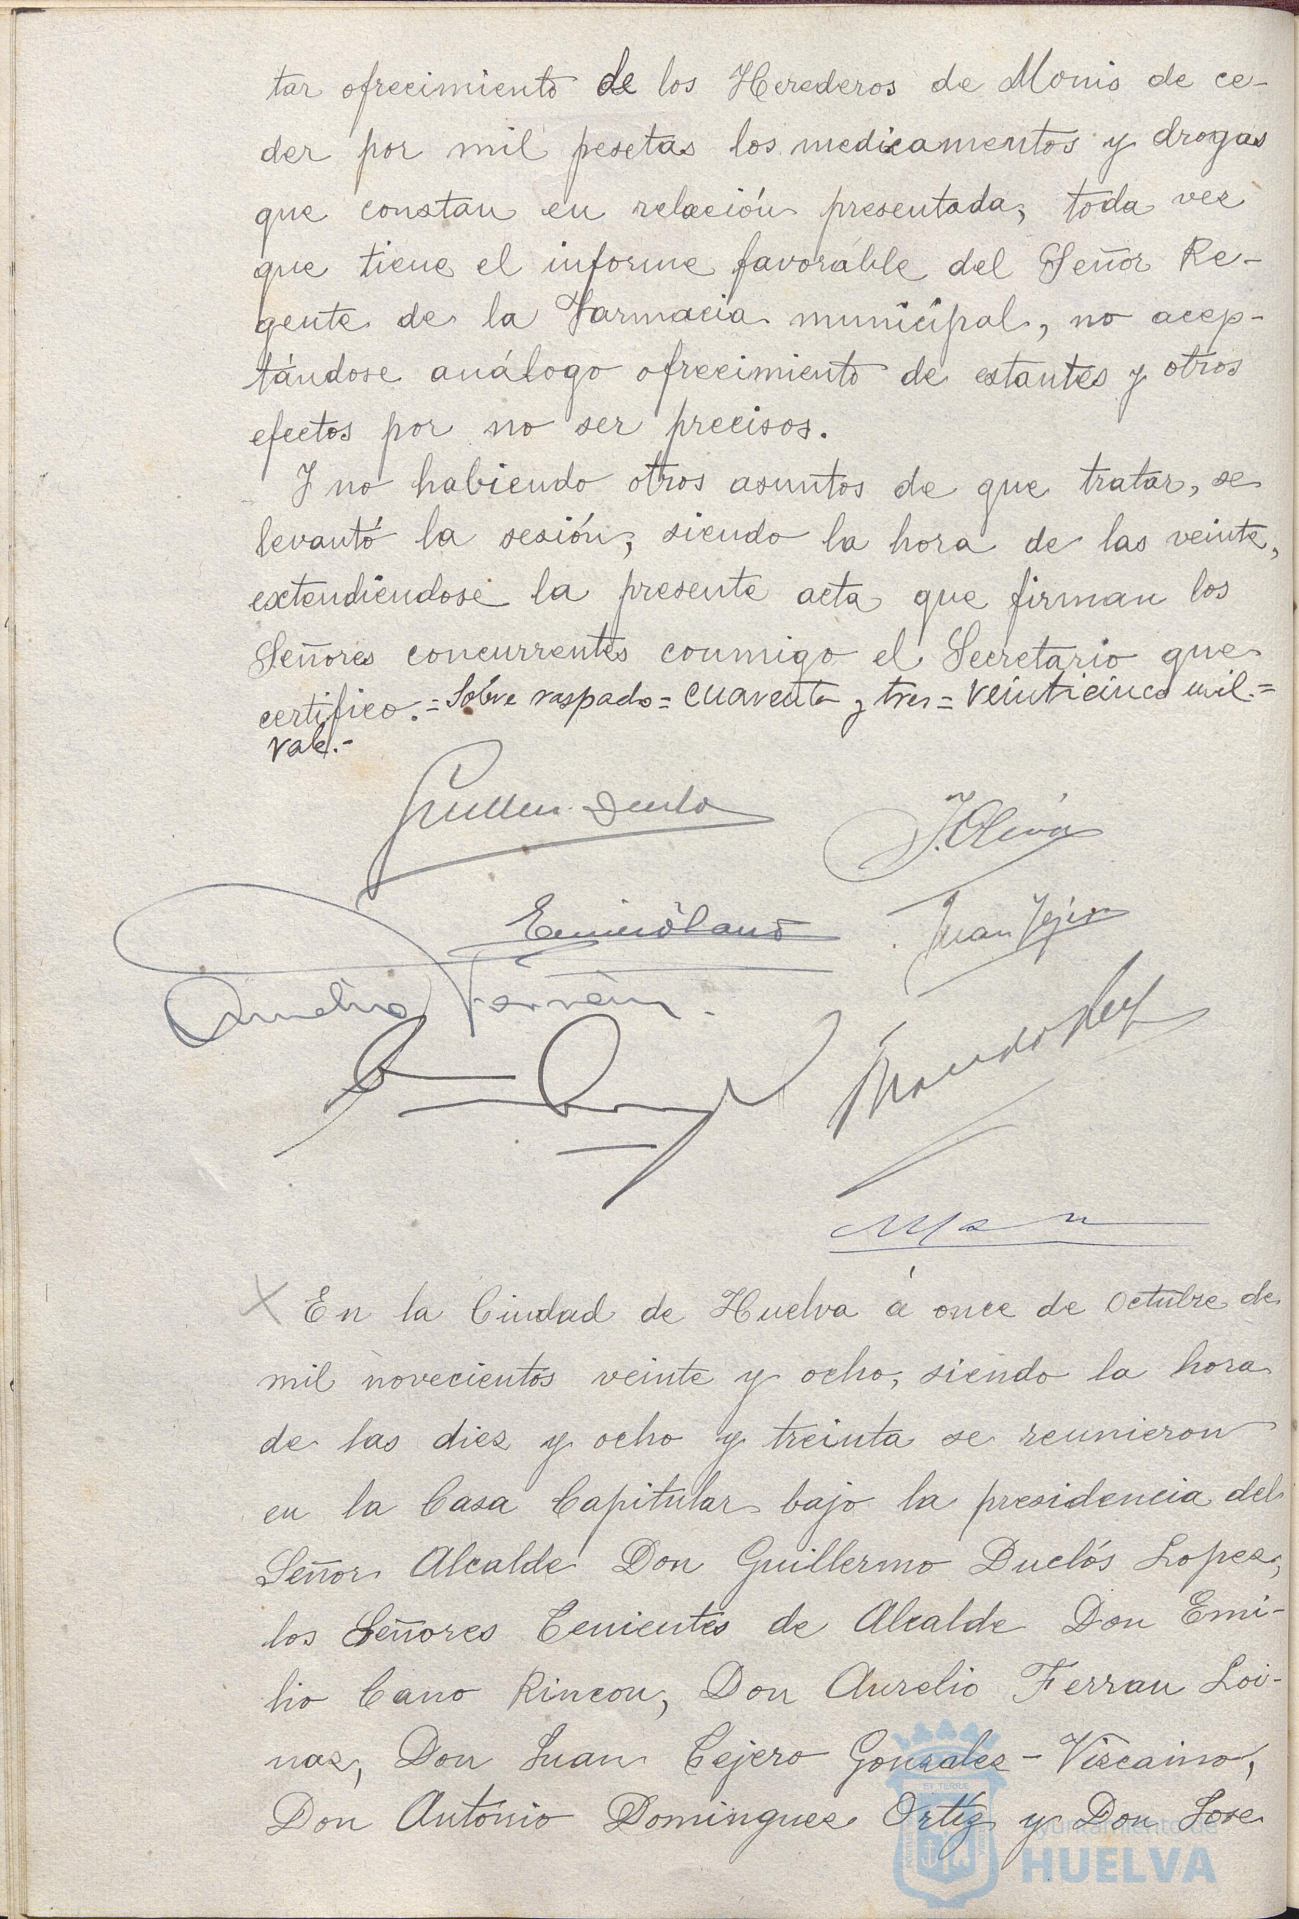 tar ofrecimiento de los Herederos de Monis de ce-
der por mil pesetas los medicamentos y drogas
que constan en relación presentada, toda vez
que tiene el informe favorable del Señor Re-
gente de la Farmacia municipal, no acep-
tándose análogo ofrecimiento de estantes y otros
efectos por no ser precisos.
Y no habiendo otros asuntos de que tratar, se
levantó la sesión, siendo la hora de las veinte,
extendiéndose la presente acta que firman los
Señores concurrentes conmigo el Secretario que
certifico.=Sobre raspado=cuarenta y tres=veinticinco mil.=
vale.-
J. Oliva
Emilio Cano
Juan Tejero
Aurelio Ferrán
En la Ciudad de Huelva á once de Octubre de
mil novecientos veinte y ocho, siendo la hora
de las diez y ocho y treinta se reunieron
en la Casa Capitular bajo la presidencia del
Señor Alcalde Don Guillermo Duclós Lopez,
los Señores Tenientes de Alcalde Don Emi-
lio Cano Rincon, Don Aurelio Ferran Loi-
naz, Don Juan Tejero Gonzalez-Vizcaino,
Don Antonio Dominguez Ortíz y Don Jose
Ayuntamiento de
HUELVA